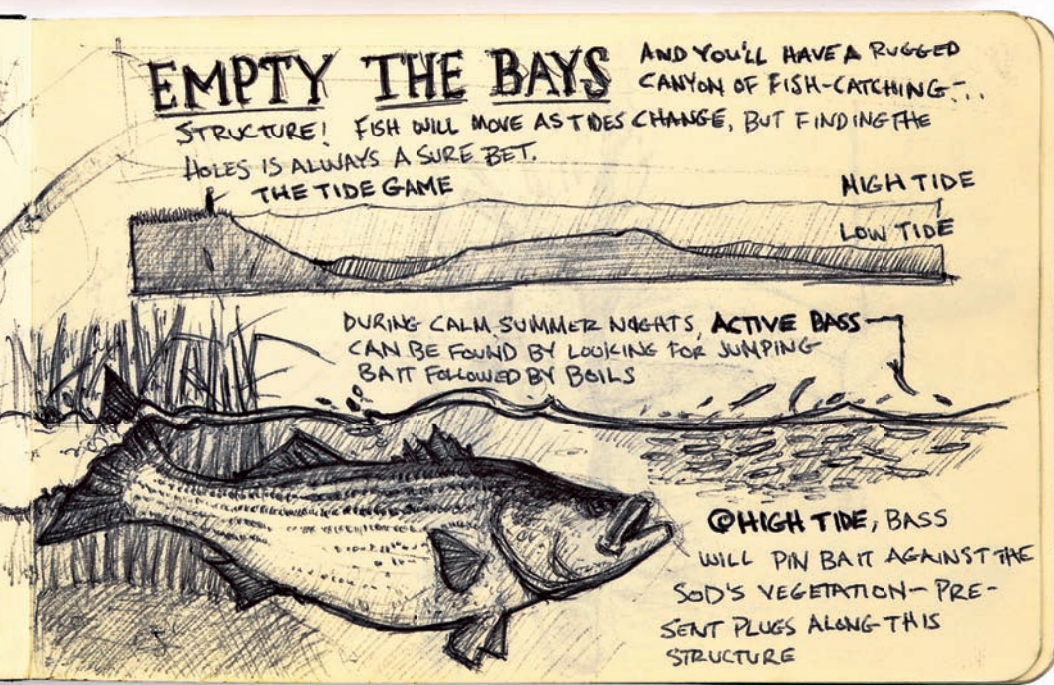 EMPTY THE BAYS
AND YOU'LL HAVE A RUGGED
CANYON OF FISH-CATCHING-...
STRUCTURE! FISH WILL MOVE AS TIDES CHANGE, BUT FINDING THE
HOLES IS ALWAYS A SURE BET.
THE TIDE GAME
HIGH TIDE
LOW TIDE
DURING CALM SUMMER NIGHTS, ACTIVE BASS
CAN BE FOUND BY LOOKING FOR JUMPING
BAIT FOLLOWED BY BOILS
@HIGH TIDE, BASS
WILL PIN BAIT AGAINST THE
SOD'S VEGETATION - PRE-
SENT PLUGS ALONG THIS
STRUCTURE